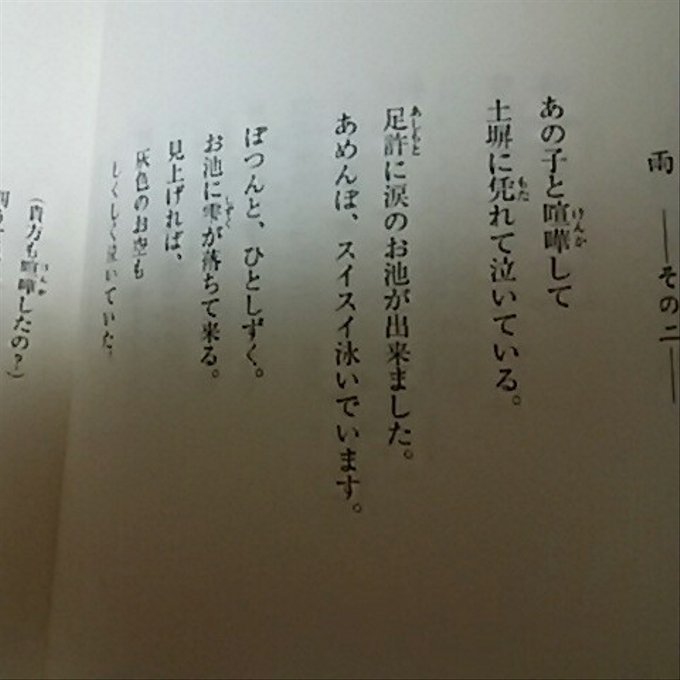 雨 ――その二――
あの子と喧嘩して
土塀に凭れて泣いている。
足許に涙のお池が出来ました。
あめんぼ、スイスイ泳いでいます。
ぽつんと、ひとしずく。
お池に雫が落ちて来る。
見上げれば、
灰色のお空も
しくしく泣いていた。
(貴方も喧嘩したの?)